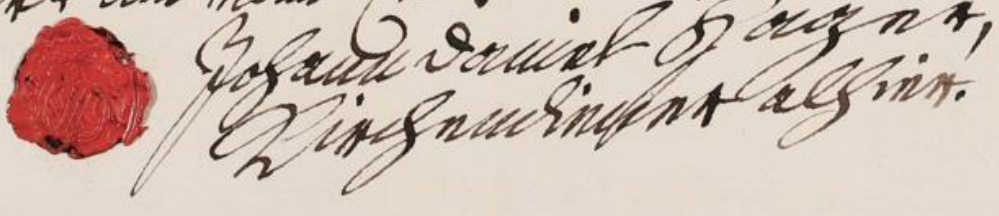 Johann Daniel Hager,
Kirchendiener alhier.